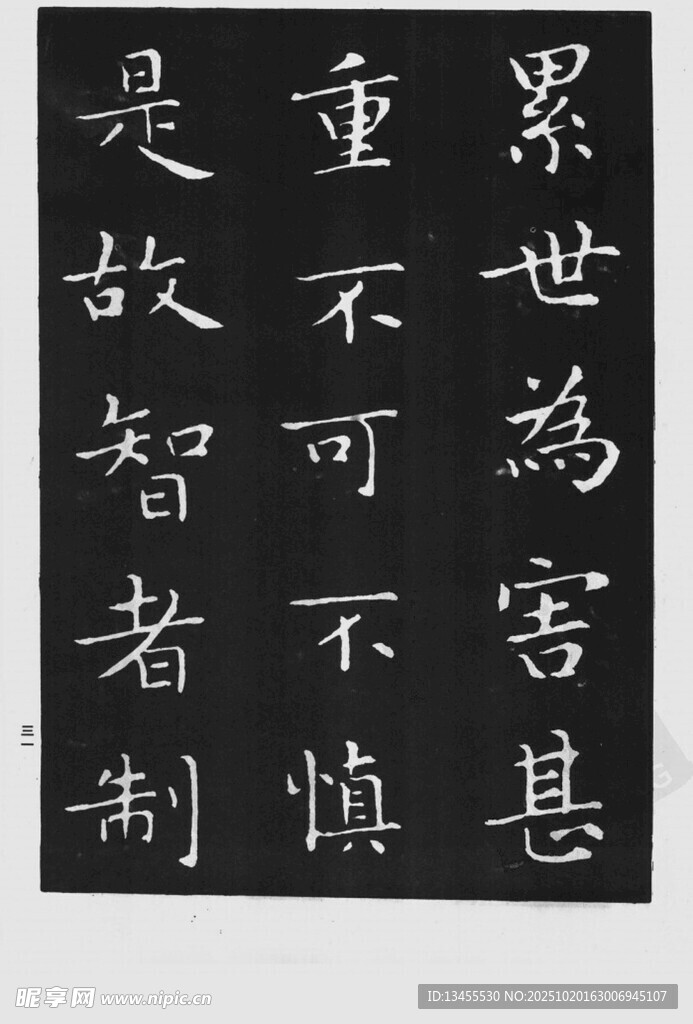 累世為害甚
重不可不慎
是故智者制
三一
昵享网 www.nipic.cn
ID:13455530 NO:20251020163006945107